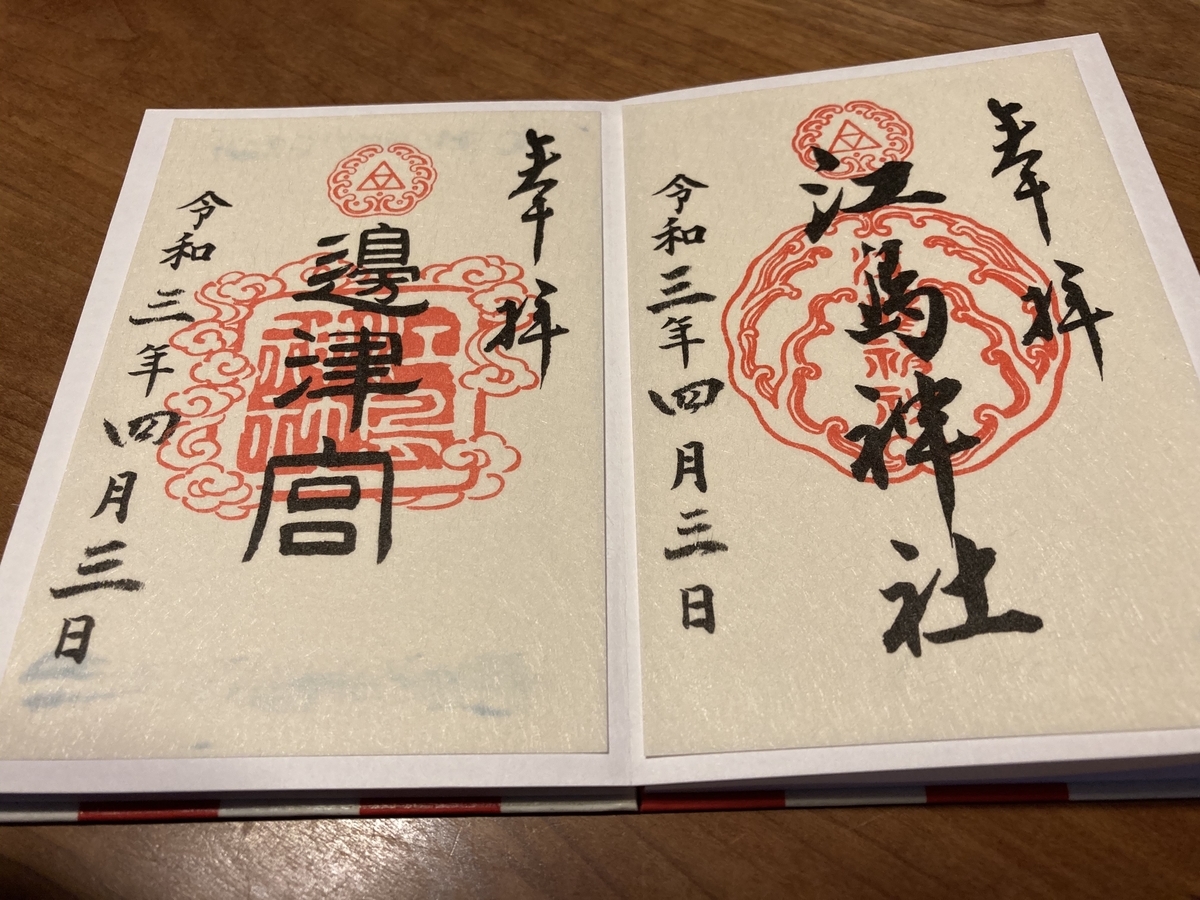 奉拝
江島神社
令和三年四月三日
奉拝
邊津宮
令和三年四月三日